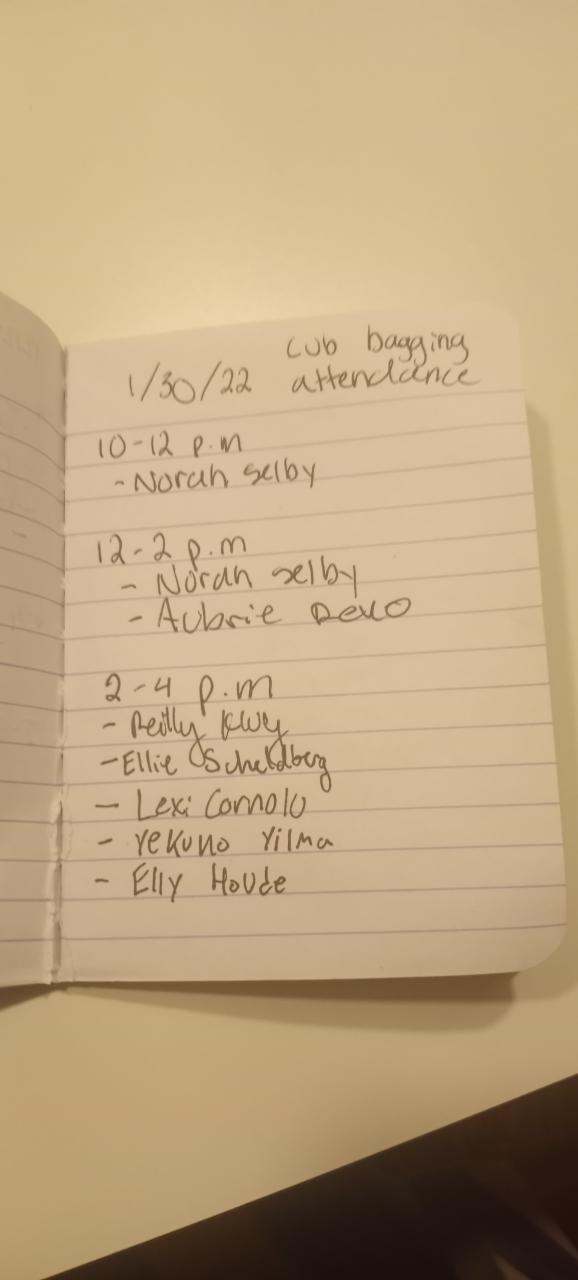 cub bagging
1/30/22 attendance
10-12 p.m
- Norah selby
12-2 p.m
- Norah selby
- Aubrie
2-4 p.m
- Reilly
- Ellie Scheldberg
- Lexi
- Yekuno Yilma
- Elly Houde